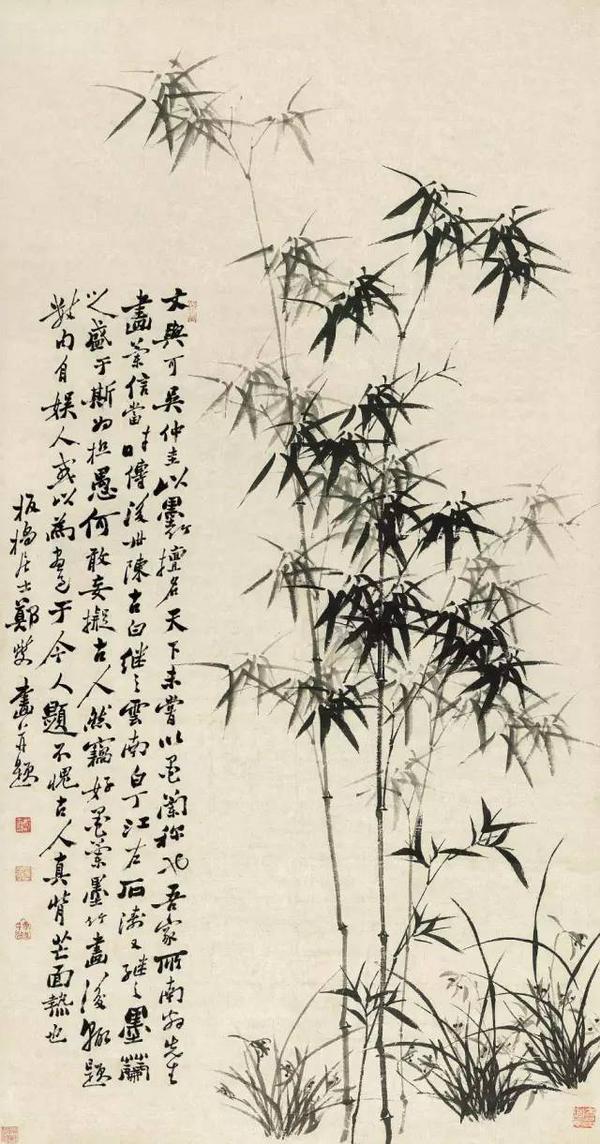 文與可吳仲圭以墨竹擅名天下未嘗以墨蘭稱也吾家所南翁先生
畫蘭信當時傳後世陳古白繼之雲南白丁江右石濤又繼之墨蘭
之盛于斯為極愚何敢妄擬古人然竊好墨蘭墨竹畫後輒題
內自娛人或以為色于今人題不愧古人真背芒面熱也
板橋居士鄭燮畫并題